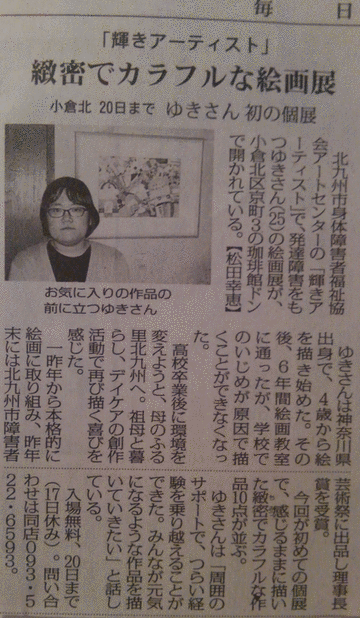 毎　日
「輝きアーティスト」
緻密でカラフルな絵画展
小倉北 20日まで ゆきさん 初の個展
お気に入りの作品の
前に立つゆきさん
北九州市身体障害者福祉協
会アートセンターの「輝きア
ーティスト」で、発達障害をも
つゆきさん(25)の絵画展が、
小倉北区京町3の珈琲館ドン
で開かれている。【松田幸恵】
ゆきさんは神奈川県
出身で、4歳から絵
を描き始めた。その
後、6年間絵画教室
に通ったが、学校で
のいじめが原因で描
くことができなくなっ
た。
高校卒業後に環境を
変えようと、母のふる
里北九州へ。祖母と暮
らし、デイケアの創作
活動で再び描く喜びを
感じた。
一昨年から本格的に
絵画に取り組み、昨年
末には北九州市障害者
芸術祭に出品し理事長
賞を受賞。
今回が初めての個展
で、感じるままに描い
た緻密でカラフルな作
品10点が並ぶ。
ゆきさんは「周囲の
サポートで、つらい経
験を乗り越えることが
できた。みんなが元気
になるような作品を描
いていきたい」と話し
ている。
入場無料、20日まで
(17日休み)。問い合
わせは同店093・5
22・6593。